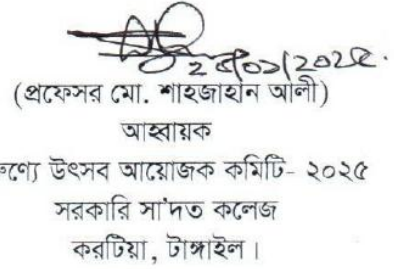 ২৫/০১/২০২৫
(প্রফেসর মো. শাহজাহান আলী)
আহ্বায়ক
উৎসব আয়োজক কমিটি- ২০২৫
সরকারি সা'দত কলেজ
করটিয়া, টাঙ্গাইল।